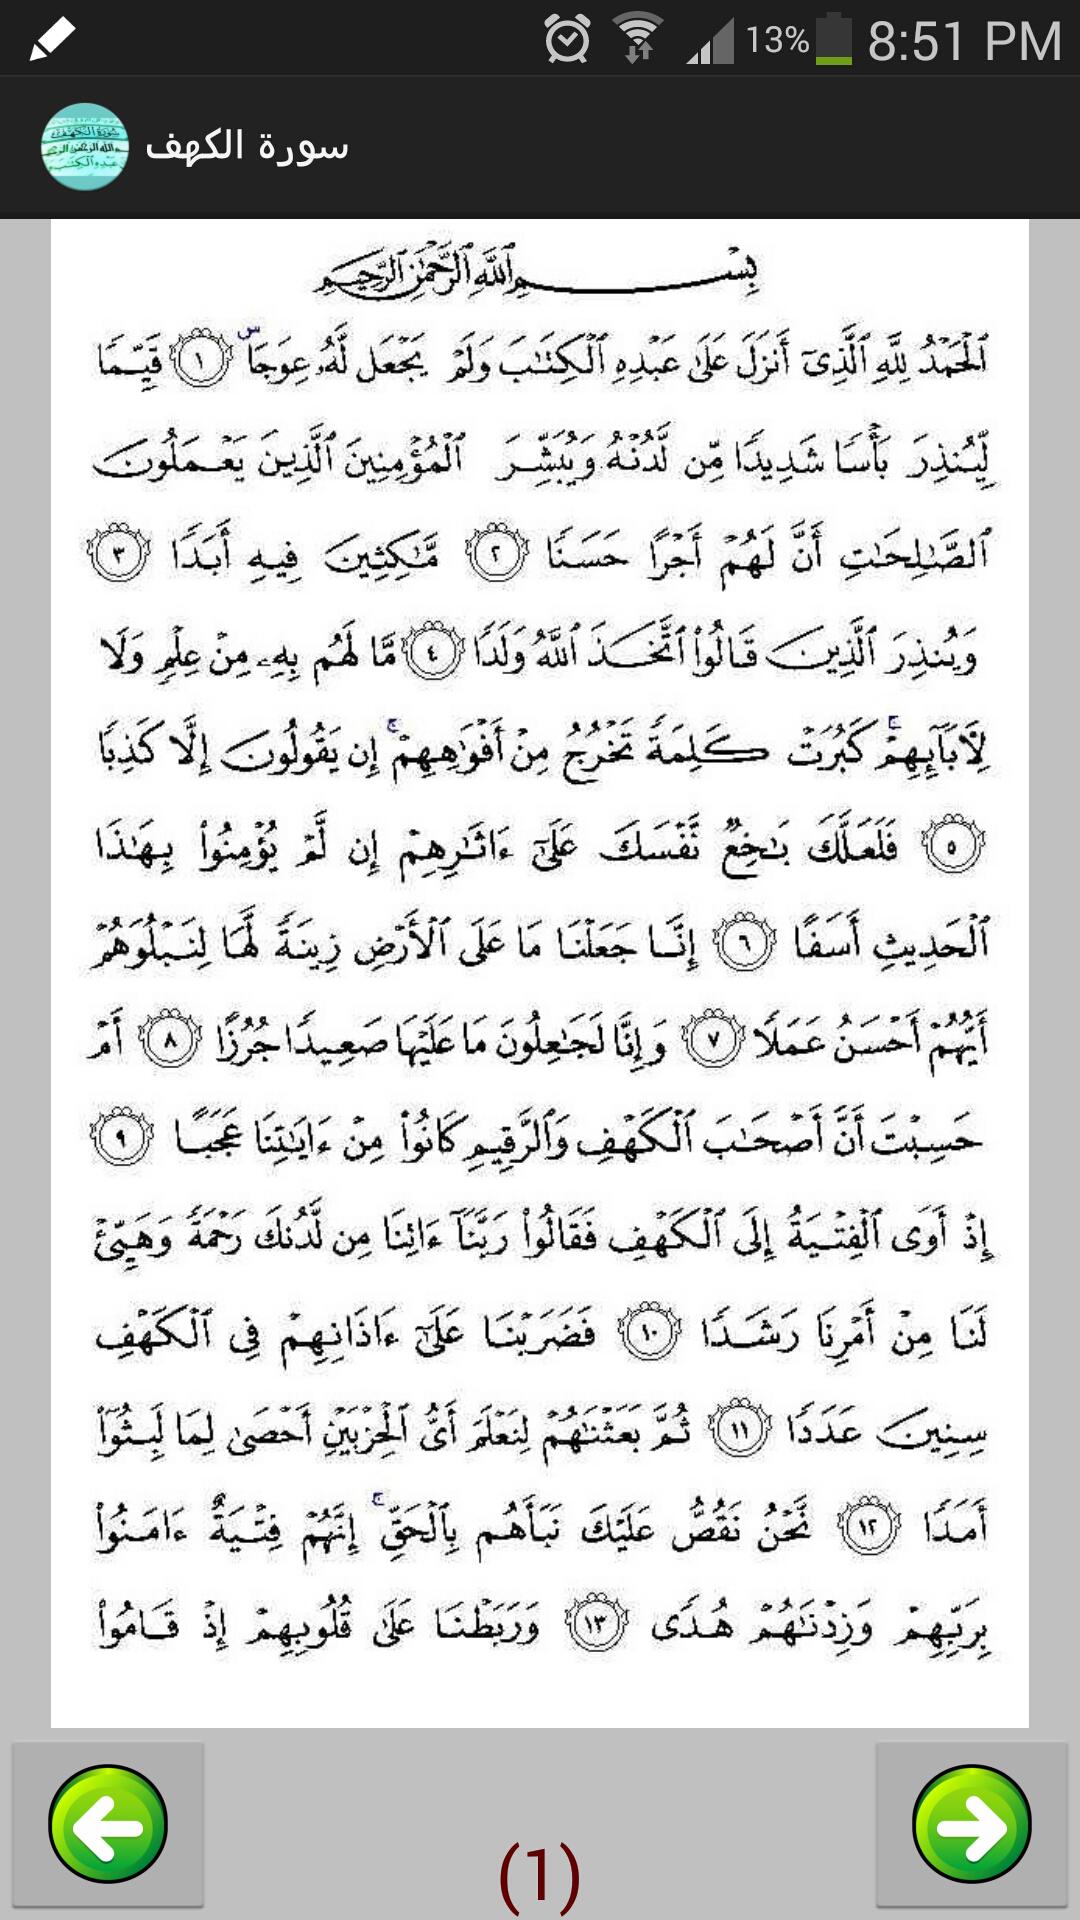 13% 8:51 PM
سورة الكهف
بِسْمِ ٱللَّهِ ٱلرَّحْمَٰنِ ٱلرَّحِيمِ
ٱلْحَمْدُ لِلَّهِ ٱلَّذِىٓ أَنزَلَ عَلَىٰ عَبْدِهِ ٱلْكِتَٰبَ وَلَمْ يَجْعَل لَّهُۥ عِوَجَاۜ ١ قَيِّمًا
لِّيُنذِرَ بَأْسًا شَدِيدًا مِّن لَّدُنْهُ وَيُبَشِّرَ ٱلْمُؤْمِنِينَ ٱلَّذِينَ يَعْمَلُونَ
ٱلصَّٰلِحَٰتِ أَنَّ لَهُمْ أَجْرًا حَسَنًا ٢ مَّٰكِثِينَ فِيهِ أَبَدًا ٣
وَيُنذِرَ ٱلَّذِينَ قَالُوا۟ ٱتَّخَذَ ٱللَّهُ وَلَدًا ٤ مَّا لَهُم بِهِۦ مِنْ عِلْمٍ وَلَا
لِءَابَآئِهِمْ ۚ كَبُرَتْ كَلِمَةً تَخْرُجُ مِنْ أَفْوَٰهِهِمْ ۚ إِن يَقُولُونَ إِلَّا كَذِبًا
٥ فَلَعَلَّكَ بَٰخِعٌ نَّفْسَكَ عَلَىٰٓ ءَاثَٰرِهِمْ إِن لَّمْ يُؤْمِنُوا۟ بِهَٰذَا
ٱلْحَدِيثِ أَسَفًا ٦ إِنَّا جَعَلْنَا مَا عَلَى ٱلْأَرْضِ زِينَةً لَّهَا لِنَبْلُوَهُمْ
أَيُّهُمْ أَحْسَنُ عَمَلًا ٧ وَإِنَّا لَجَٰعِلُونَ مَا عَلَيْهَا صَعِيدًا جُرُزًا ٨ أَمْ
حَسِبْتَ أَنَّ أَصْحَٰبَ ٱلْكَهْفِ وَٱلرَّقِيمِ كَانُوا۟ مِنْ ءَايَٰتِنَا عَجَبًا ٩
إِذْ أَوَى ٱلْفِتْيَةُ إِلَى ٱلْكَهْفِ فَقَالُوا۟ رَبَّنَآ ءَاتِنَا مِن لَّدُنكَ رَحْمَةً وَهَيِّئْ
لَنَا مِنْ أَمْرِنَا رَشَدًا ١٠ فَضَرَبْنَا عَلَىٰٓ ءَاذَانِهِمْ فِى ٱلْكَهْفِ
سِنِينَ عَدَدًا ١١ ثُمَّ بَعَثْنَٰهُمْ لِنَعْلَمَ أَىُّ ٱلْحِزْبَيْنِ أَحْصَىٰ لِمَا لَبِثُوٓا۟
أَمَدًا ١٢ نَّحْنُ نَقُصُّ عَلَيْكَ نَبَأَهُم بِٱلْحَقِّ ۚ إِنَّهُمْ فِتْيَةٌ ءَامَنُوا۟
بِرَبِّهِمْ وَزِدْنَٰهُمْ هُدًى ١٣ وَرَبَطْنَا عَلَىٰ قُلُوبِهِمْ إِذْ قَامُوا۟
(1)